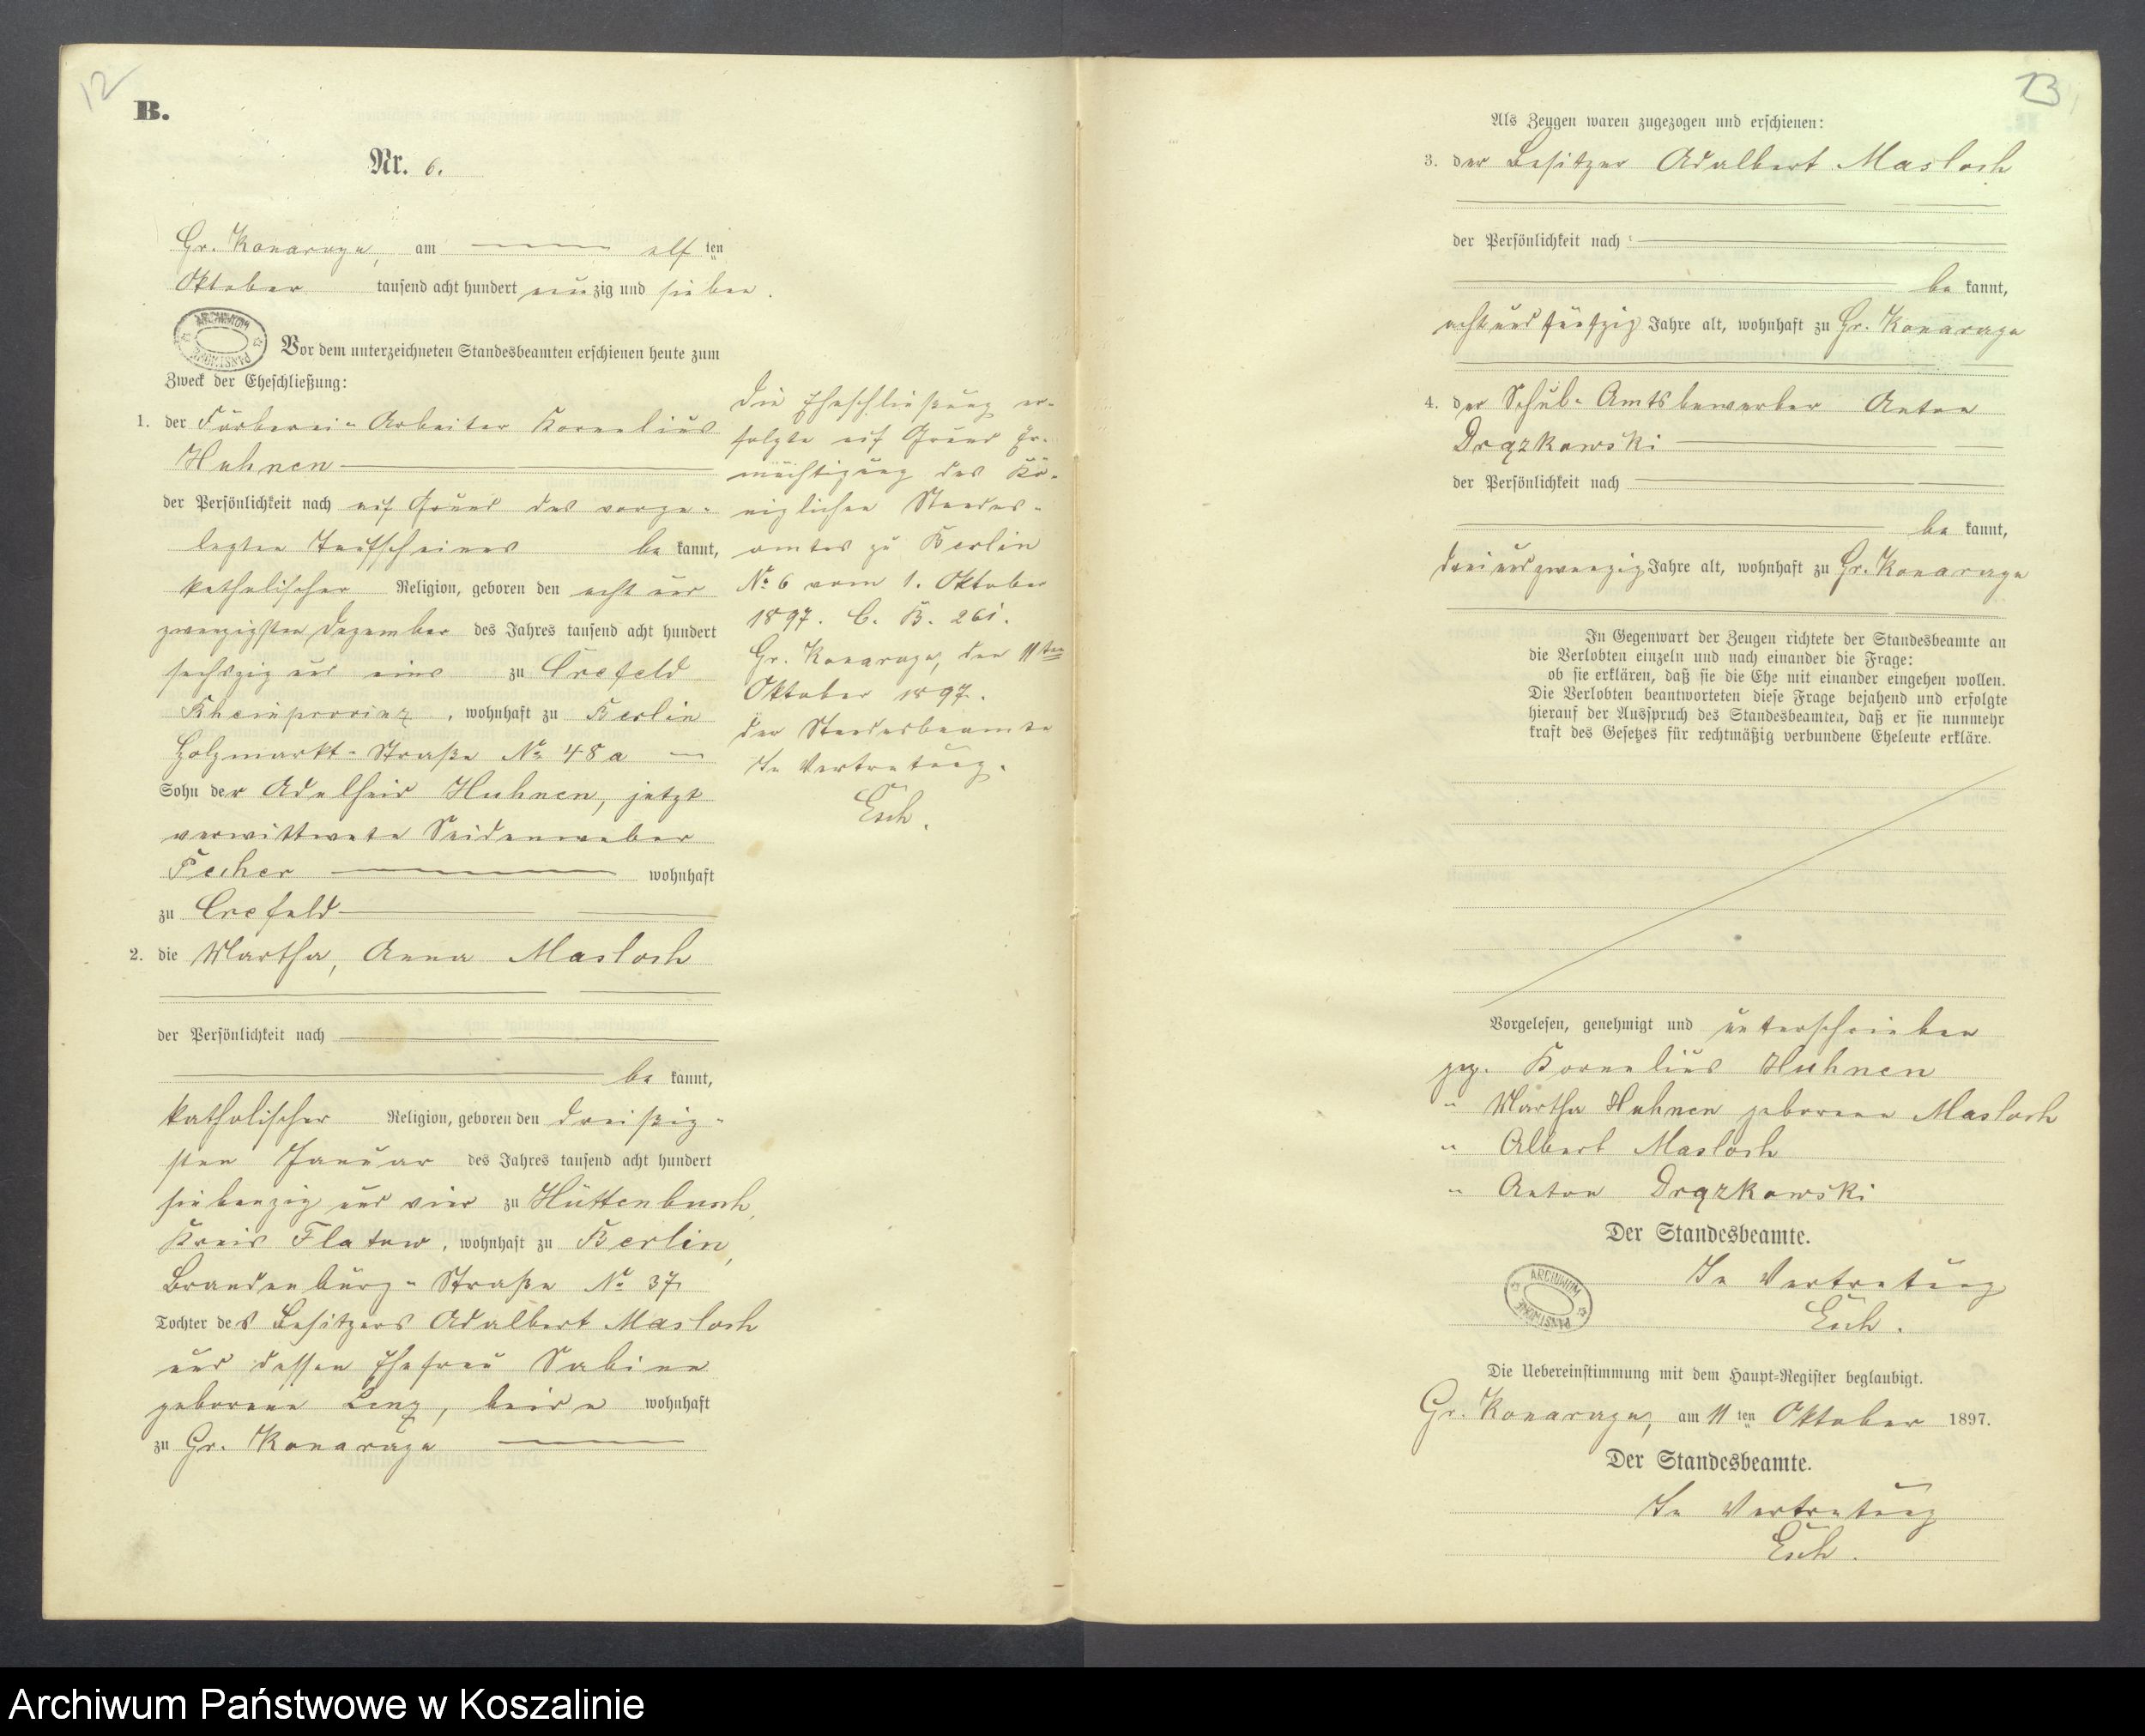 12
B.
Nr. 6.
Gr. Konarzyn, am elf ten
Oktober tausend acht hundert neunzig und sieben.
ARCHIWUM PAŃSTWOWE
Vor dem unterzeichneten Standesbeamten erschienen heute zum
Zweck der Eheschließung:
1. der Färberei-Arbeiter Kornelius
Huhnen
der Persönlichkeit nach auf Grund des vorge-
legten Taufscheines be kannt,
katholischer Religion, geboren den acht und
zwanzigsten Dezember des Jahres tausend acht hundert
sechszig und eins zu Crefeld
Rheinprovinz, wohnhaft zu Berlin
Holzmarkt-Straße No 48a
Sohn der Adelheid Huhnen, jetzt
verwittwete Seidenweber
Fecher wohnhaft
zu Crefeld
2. die Martha, Anna Masloch
der Persönlichkeit nach
be kannt,
katholischer Religion, geboren den dreißig-
sten Januar des Jahres tausend acht hundert
siebenzig und vier zu Hüttenbusch,
Kreis Flatow, wohnhaft zu Berlin,
Brandenburg-Straße No 37
Tochter des Besitzers Adalbert Masloch
und dessen Ehefrau Sabine
geborene Lenz, beide wohnhaft
zu Gr. Konarzyn
Die Eheschließung er-
folgte auf Grund Er-
mächtigung des Kö-
niglichen Standes-
amtes zu Berlin
No 6 vom 1. Oktober
1897. C. B. 261.
Gr. Konarzyn, den 11ten
Oktober 1897.
Der Standesbeamte
In Vertretung.
Esch.
13
Als Zeugen waren zugezogen und erschienen:
3. der Besitzer Adalbert Masloch
der Persönlichkeit nach
be kannt,
acht und fünfzig Jahre alt, wohnhaft zu Gr. Konarzyn
4. der Schul-Amtsbewerber Anton
Drązkowski
der Persönlichkeit nach
be kannt,
drei und zwanzig Jahre alt, wohnhaft zu Gr. Konarzyn
In Gegenwart der Zeugen richtete der Standesbeamte an
die Verlobten einzeln und nach einander die Frage:
ob sie erklären, daß sie die Ehe mit einander eingehen wollen.
Die Verlobten beantworteten diese Frage bejahend und erfolgte
hierauf der Ausspruch des Standesbeamten, daß er sie nunmehr
kraft des Gesetzes für rechtmäßig verbundene Eheleute erkläre.
Vorgelesen, genehmigt und unterschrieben
gez. Kornelius Huhnen
" Martha Huhnen geborene Masloch
" Albert Masloch
" Anton Drązkowski
Der Standesbeamte.
In Vertretung
Esch.
ARCHIWUM PAŃSTWOWE
Die Uebereinstimmung mit dem Haupt-Register beglaubigt.
Gr. Konarzyn, am 11 ten Oktober 1897.
Der Standesbeamte.
In Vertretung
Esch.
Archiwum Państwowe w Koszalinie